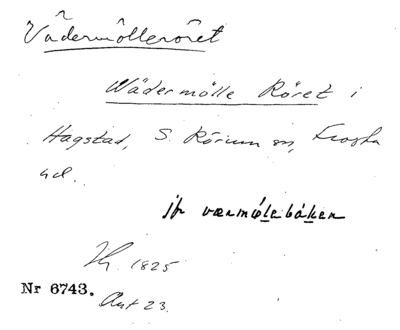 Vädermölleröret
Wädermölle Röret i
Hagstad, S. Rörum sn, Frosta
hd.
jfr værmølebåken
1825
Nr 6743.
Ant 23.